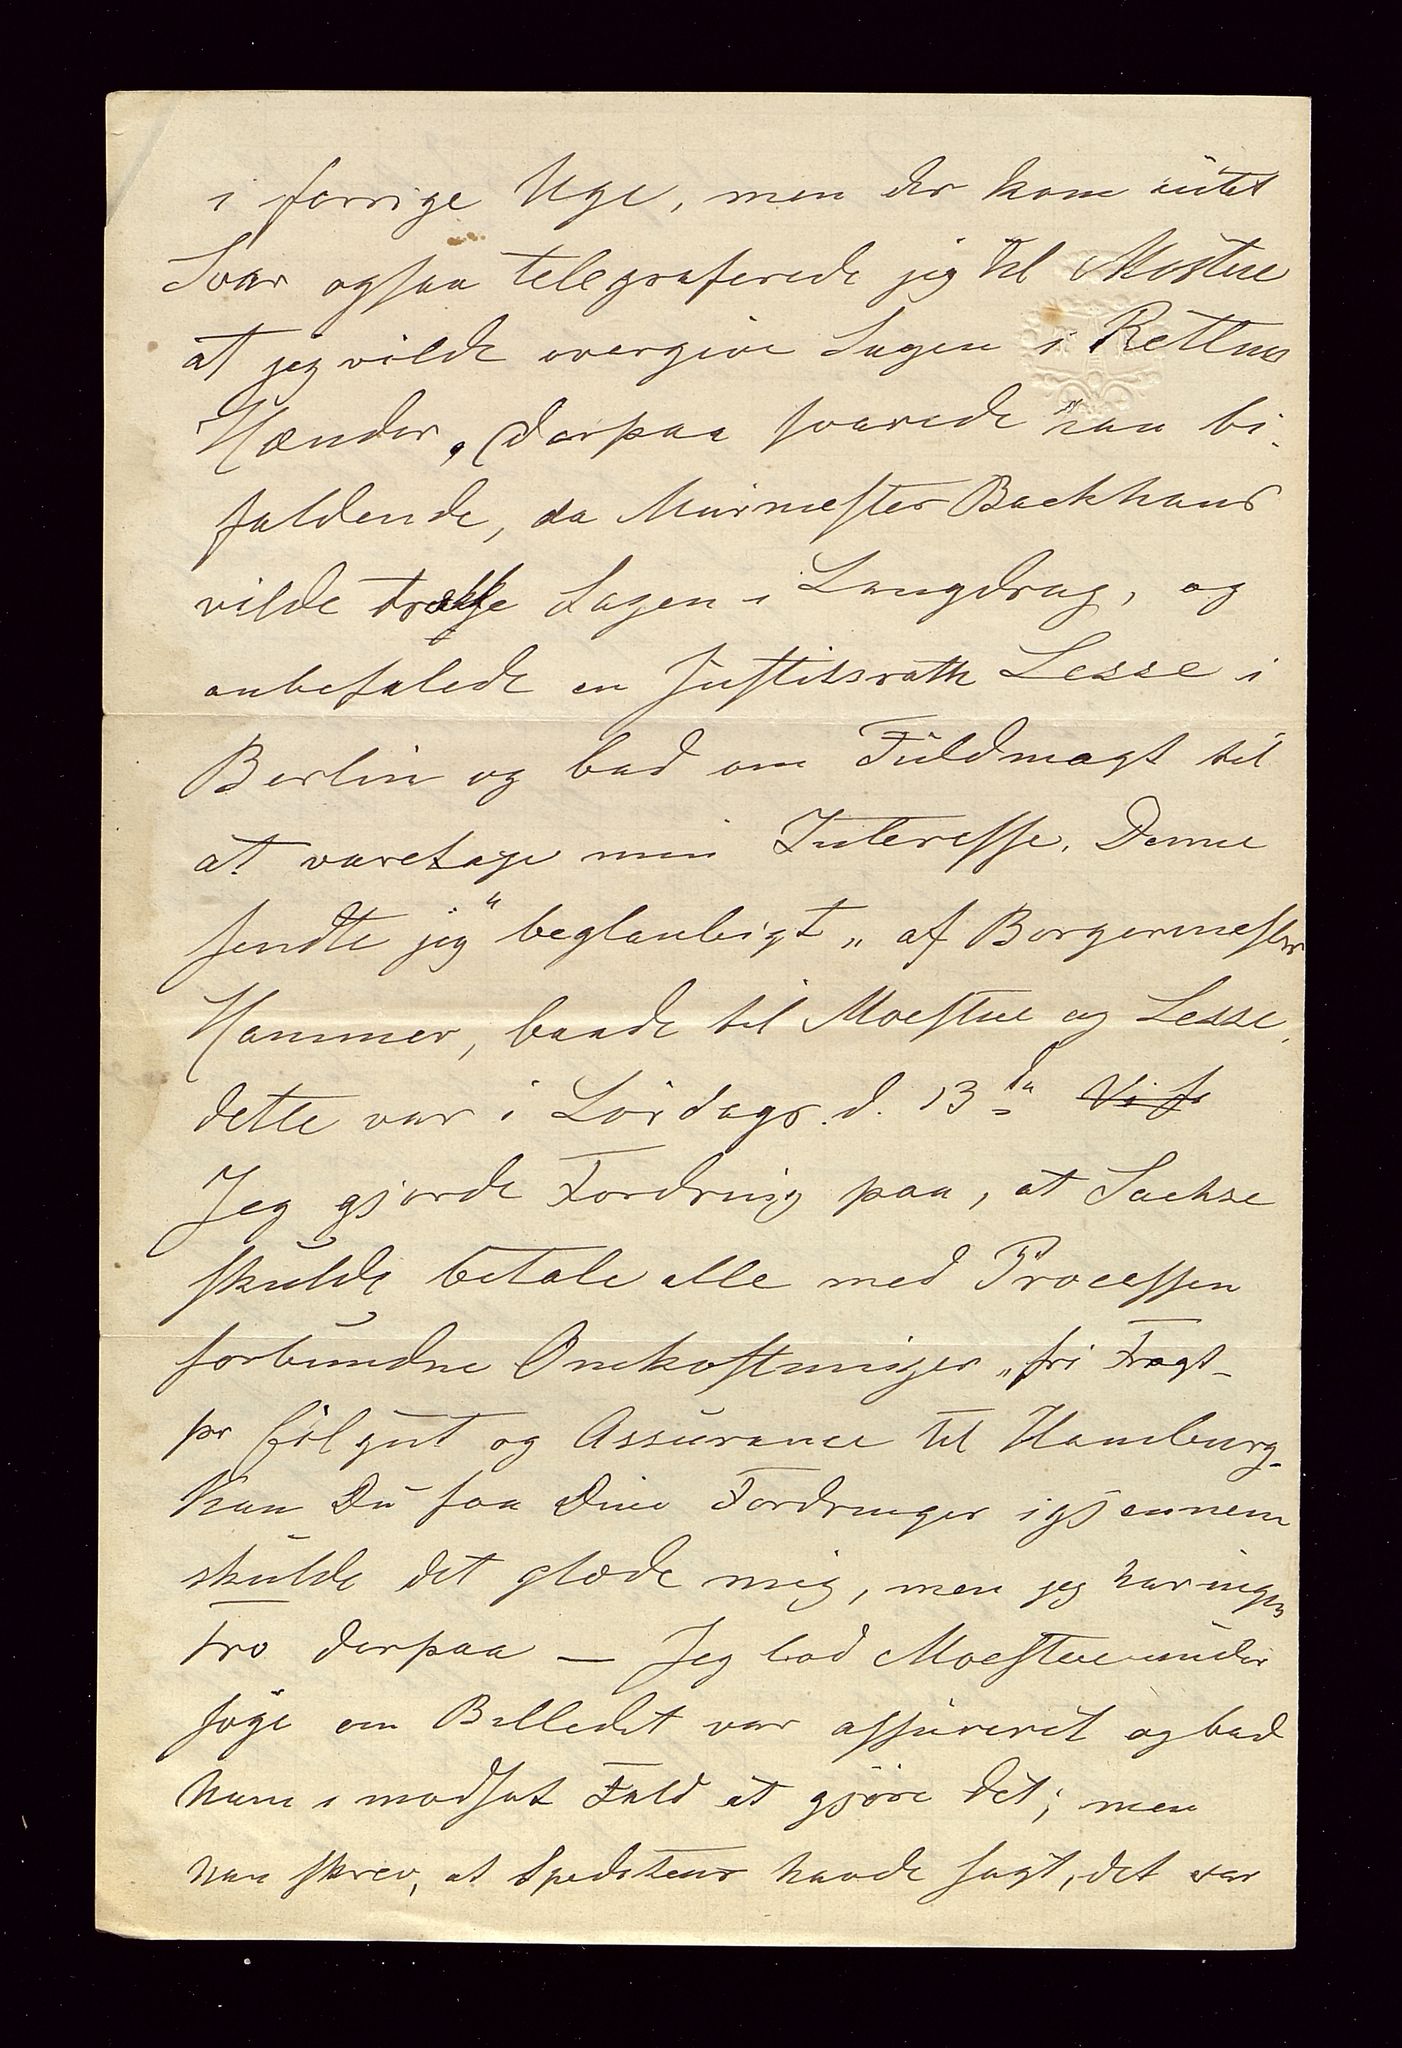 i forrige Uge, men der kom intet
Svar ogsaa telegraferede jeg til Mostue
at jeg vilde overgive Sagen i Rettens
Hænder, derpaa svarede han bi-
faldende, da Murmester Backhaus
vilde trække Sagen i Langdrag, og
anbefalede en Justitsrath Lesse i
Berlin og bad om Fuldmagt til
at varetage min Interesse. Denne
sendte jeg "beglaubigt" af Borgermester
Hammer, baade til Moestue og Lesse,
dette var i Lördags d. 13de Vi f
Jeg gjorde Fordring paa, at Sachse
skulde betale alle med Processen
forbundne Omkostninger "fri Fragt-
pr Eilgut og Assurance til Hamburg-
Kan Du faa Dine Fordringer igjennem
skulde det glæde mig, men jeg har ingen
Tro derpaa — Jeg bad Moestue under
söge om Billedet var assureret og bad
ham i modsat Fald at gjöre det; men
han skrev, at Spediteur havde sagt, det var